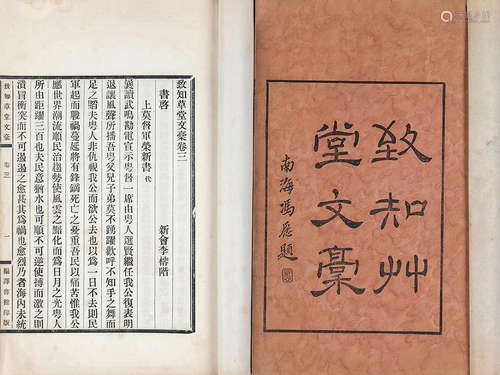 致知艸
堂文稾
南海馮愿題
致知草堂文稾卷三
書啓
新會李榕階
上莫督軍榮新書 代
曩讀武鳴勘電宣示粵督一席由粵人選賢繼任我公復表明
退讓風聲所播吾粵父兄子弟莫不踴躍歡呼不知手之舞而
足之蹈夫粵人非仇視我公而欲公去也以爲一日不去則民
軍起而戰禍蔓延將有鋒鏑死亡之憂重吾民以痛苦惟我公
應世界潮流順民治趨勢使風雲之黯化而爲日月之光粵人
所由距躍三百也夫民意猶水也可順不可逆使搏而激之則
潰冒衝突而不可遏遏之愈甚其爲禍也愈烈乃者海內未統
致知草堂文稾
卷三
一
編譯書館印版